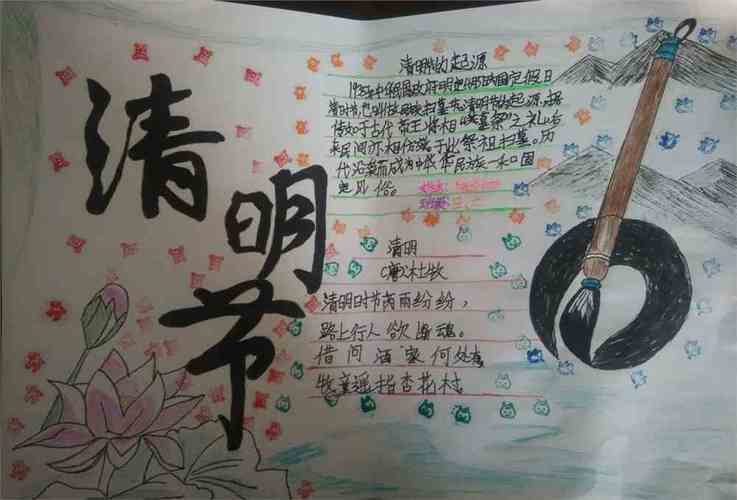 清明节
清明节的起源
1935年中华民国政府明定4月5日为国定假日
清明节,也叫做民族扫墓节。清明节的起源,据
传始于古代帝王将相"墓祭"之礼,后
来民间亦相仿效于此祭祖扫墓。历
代沿袭而成为中华民族一种固
定风俗。
清明
(唐)杜牧
清明时节雨纷纷,
路上行人欲断魂。
借问酒家何处有
牧童遥指杏花村